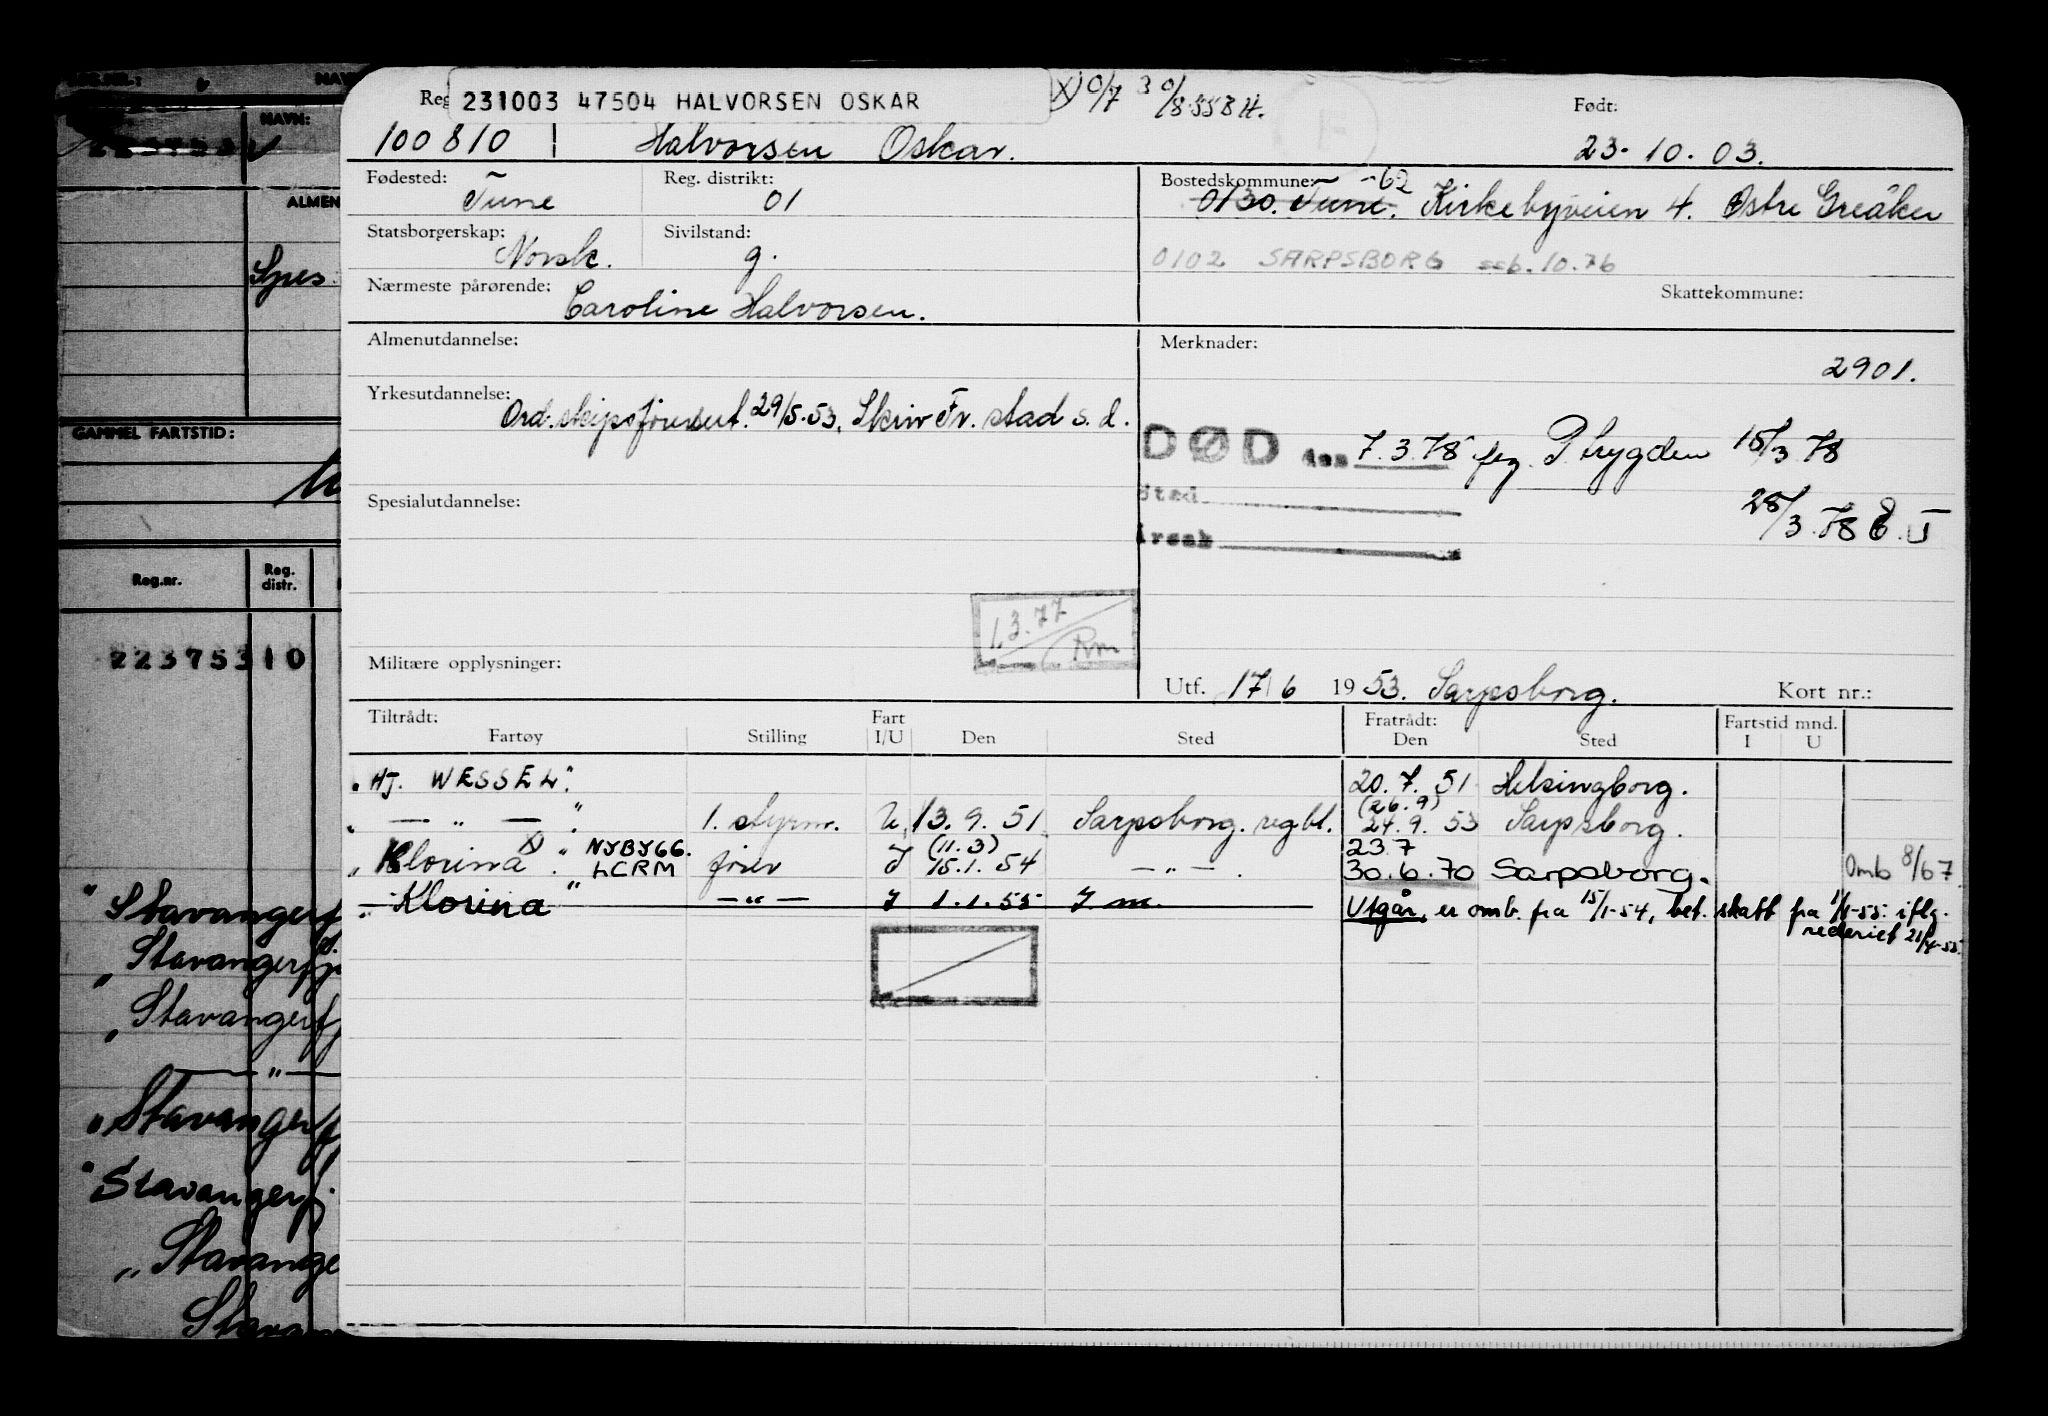 Reg 231003 47504 HALVORSEN OSKAR
Født:
100810 Halvorsen Oskar. 23.10.03.
Fødested: Tune Reg. distrikt: 01
Bostedskommune: 0130. Tune. -62 Kirkebyveien 4. Østre Greåker
Statsborgerskap: Norsk. Sivilstand: g.
0102 SARPSBORG seb. 10.76
Nærmeste pårørende: Caroline Halvorsen.
Skattekommune:
Almenutdannelse:
Merknader:
2901.
Yrkesutdannelse: Ord. skipsførersert. 29/5.53, Skriv Fr.stad s.d.
DØD den 7.3.78 flg. P.trygden 15/3 78
Sted
28/3.78
Årsak
Spesialutdannelse:
1.3.77
Rm
Militære opplysninger:
Utf. 17/6 1953. Sarpsborg. Kort nr.:
Tiltrådt: Fart Fratrådt: Fartstid mnd.
Fartøy Stilling I/U Den Sted Den Sted I U
"HJ. WESSEL" 20.7.51 Helsingborg.
(26.9)
" — " — " 1. styrm. U 13.9.51 Sarpsborg. regbl. 24.9.53 Sarpsborg.
(11.3) 23.7
"Klorina" x) NYBYGG. LCRM fører I 15.1.54 — " — . 30.6.70 Sarpsborg. Omb 8/67
"Klorina" — " — I 1.1.55 I m. Utgår, er omb. fra 15/1-54, bet. skatt fra 1/1-55 iflg.
rederiet
NAVN:
223753
ALMEN
Spes
GAMMEL FARTSTID:
Reg.nr. Reg. distr.
22375310
"Stavangerf
"Stavangerfj
"Stavangerfj
— " —
"Stavangerf
"Stavangerfj
"Stavange
Stavan